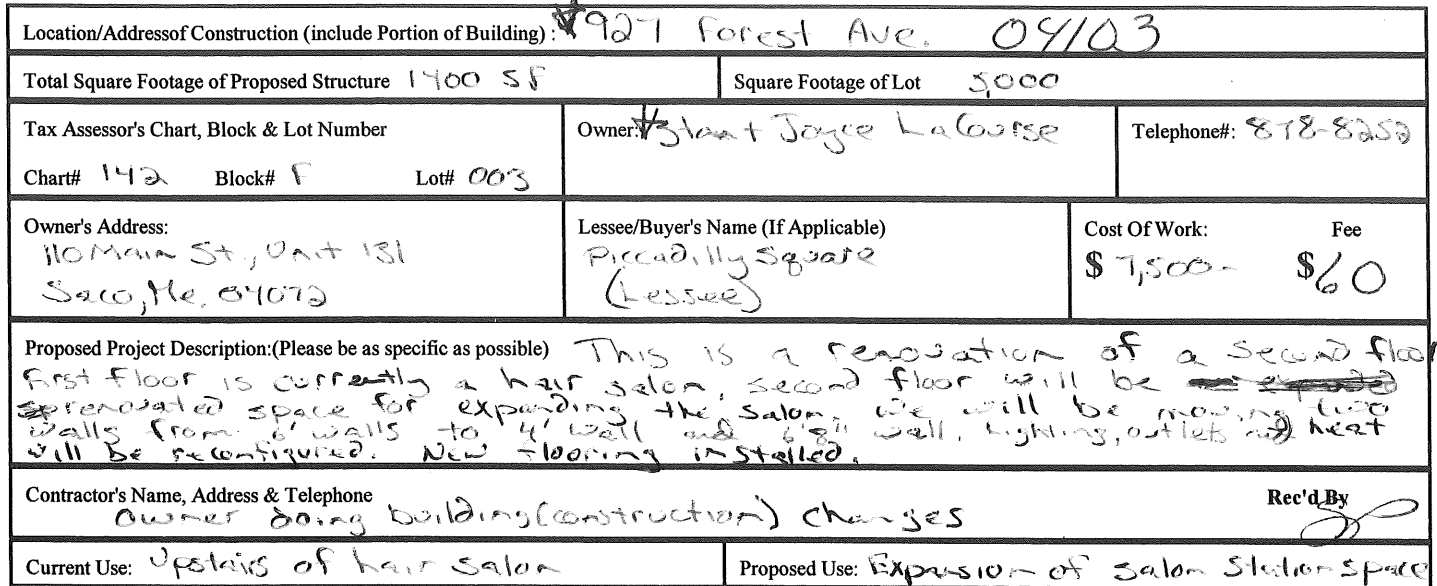 Location/Addressof Construction (include Portion of Building) : 927 Forest Ave. 04103
Total Square Footage of Proposed Structure 1400 SF Square Footage of Lot 5,000
Tax Assessor's Chart, Block & Lot Number Owner: Stan + Joyce LaCourse Telephone#: 878-8252
Chart# 142 Block# F Lot# 003
Owner's Address: Lessee/Buyer's Name (If Applicable) Cost Of Work: Fee
110 Main St., Unit 131 Piccadilly Square $ 7,500- $60
Saco, Me. 04072 (Lessee)
Proposed Project Description:(Please be as specific as possible) This is a renovation of a second floor
first floor is currently a hair salon, second floor will be
renovated space for expanding the salon. we will be moving two
walls from 6' walls to 4' wall and 6'8" wall. Lighting, outlets and heat
will be reconfigured. New flooring installed.
Contractor's Name, Address & Telephone Rec'd By
Owner doing building (construction) changes
Current Use: Upstairs of hair salon Proposed Use: Expansion of salon station space